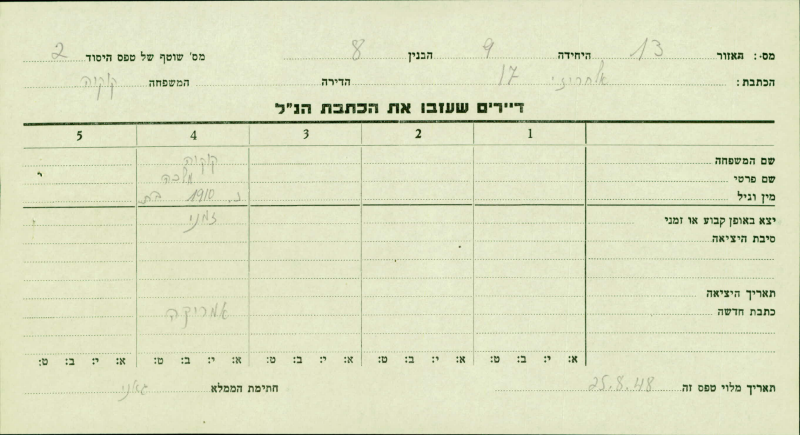 מס׳: האזור 13 היחידה 9 הבנין 8 מס׳ שוטף של טפס היסוד 2
הכתבת: אלחריזי 17 הדירה המשפחה קוקיה
דיירים שעזבו את הכתבת הנ״ל
1 2 3 4 5
שם המשפחה קוקיה
שם פרטי מלכה
מין וגיל נ. 1910
יצא באופן קבוע או זמני זמני
סיבת היציאה
תאריך היציאה
כתבת חדשה אמריקה
א: י: ב: ט: א: י: ב: ט: א: י: ב: ט: א: י: ב: ט: א: י: ב: ט:
תאריך מלוי טפס זה 25.8.48 חתימת הממלא